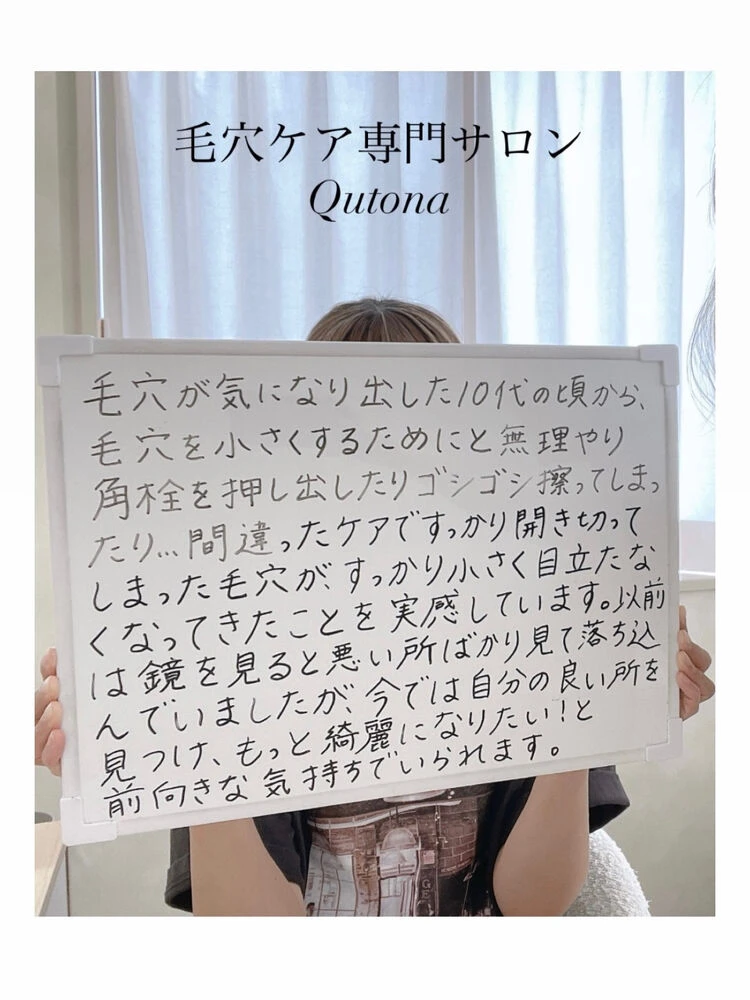 毛穴ケア専門サロン
Qutona
毛穴が気になり出した10代の頃から、
毛穴を小さくするためにと無理やり
角栓を押し出したりゴシゴシ擦ってしまっ
たり...間違ったケアですっかり開き切って
しまった毛穴が、すっかり小さく目立たな
くなってきたことを実感しています。以前
は鏡を見ると悪い所ばかり見て落ち込
んでいましたが、今では自分の良い所を
見つけ、もっと綺麗になりたい!と
前向きな気持ちでいられます。